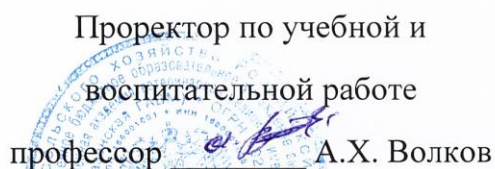 Проректор по учебной и
воспитательной работе
профессор ________ А.Х. Волков